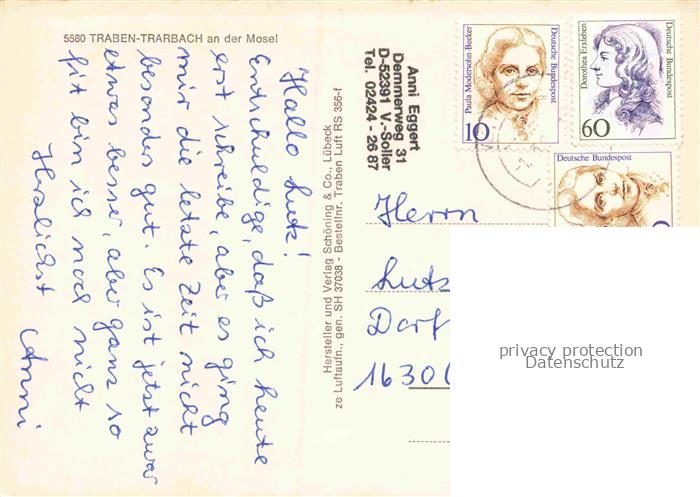 5580 TRABEN-TRARBACH an der Mosel
Hallo Lutz!
Entschuldige, daß ich heute
erst schreibe, aber es ging
mir die letzte Zeit nicht
besonders gut. Es ist jetzt zwar
etwas besser, aber ganz so
fit bin ich noch nicht
Herzlichst
Anni
Hersteller und Verlag Schöning & Co., Lübeck
ze Luftaufn., gen. SH 37038 - Bestellnr. Traben Luft RS 356-f
Anni Eggert
Demmerweg 31
D-52391 V.-Soller
Tel. 02424 - 26 87
Paula Modersohn-Becker
Deutsche Bundespost
10
Dorothea Erxleben
Deutsche Bundespost
60
Deutsche Bundespost
Herrn
Lutz
Dorf
1630
privacy protection
Datenschutz